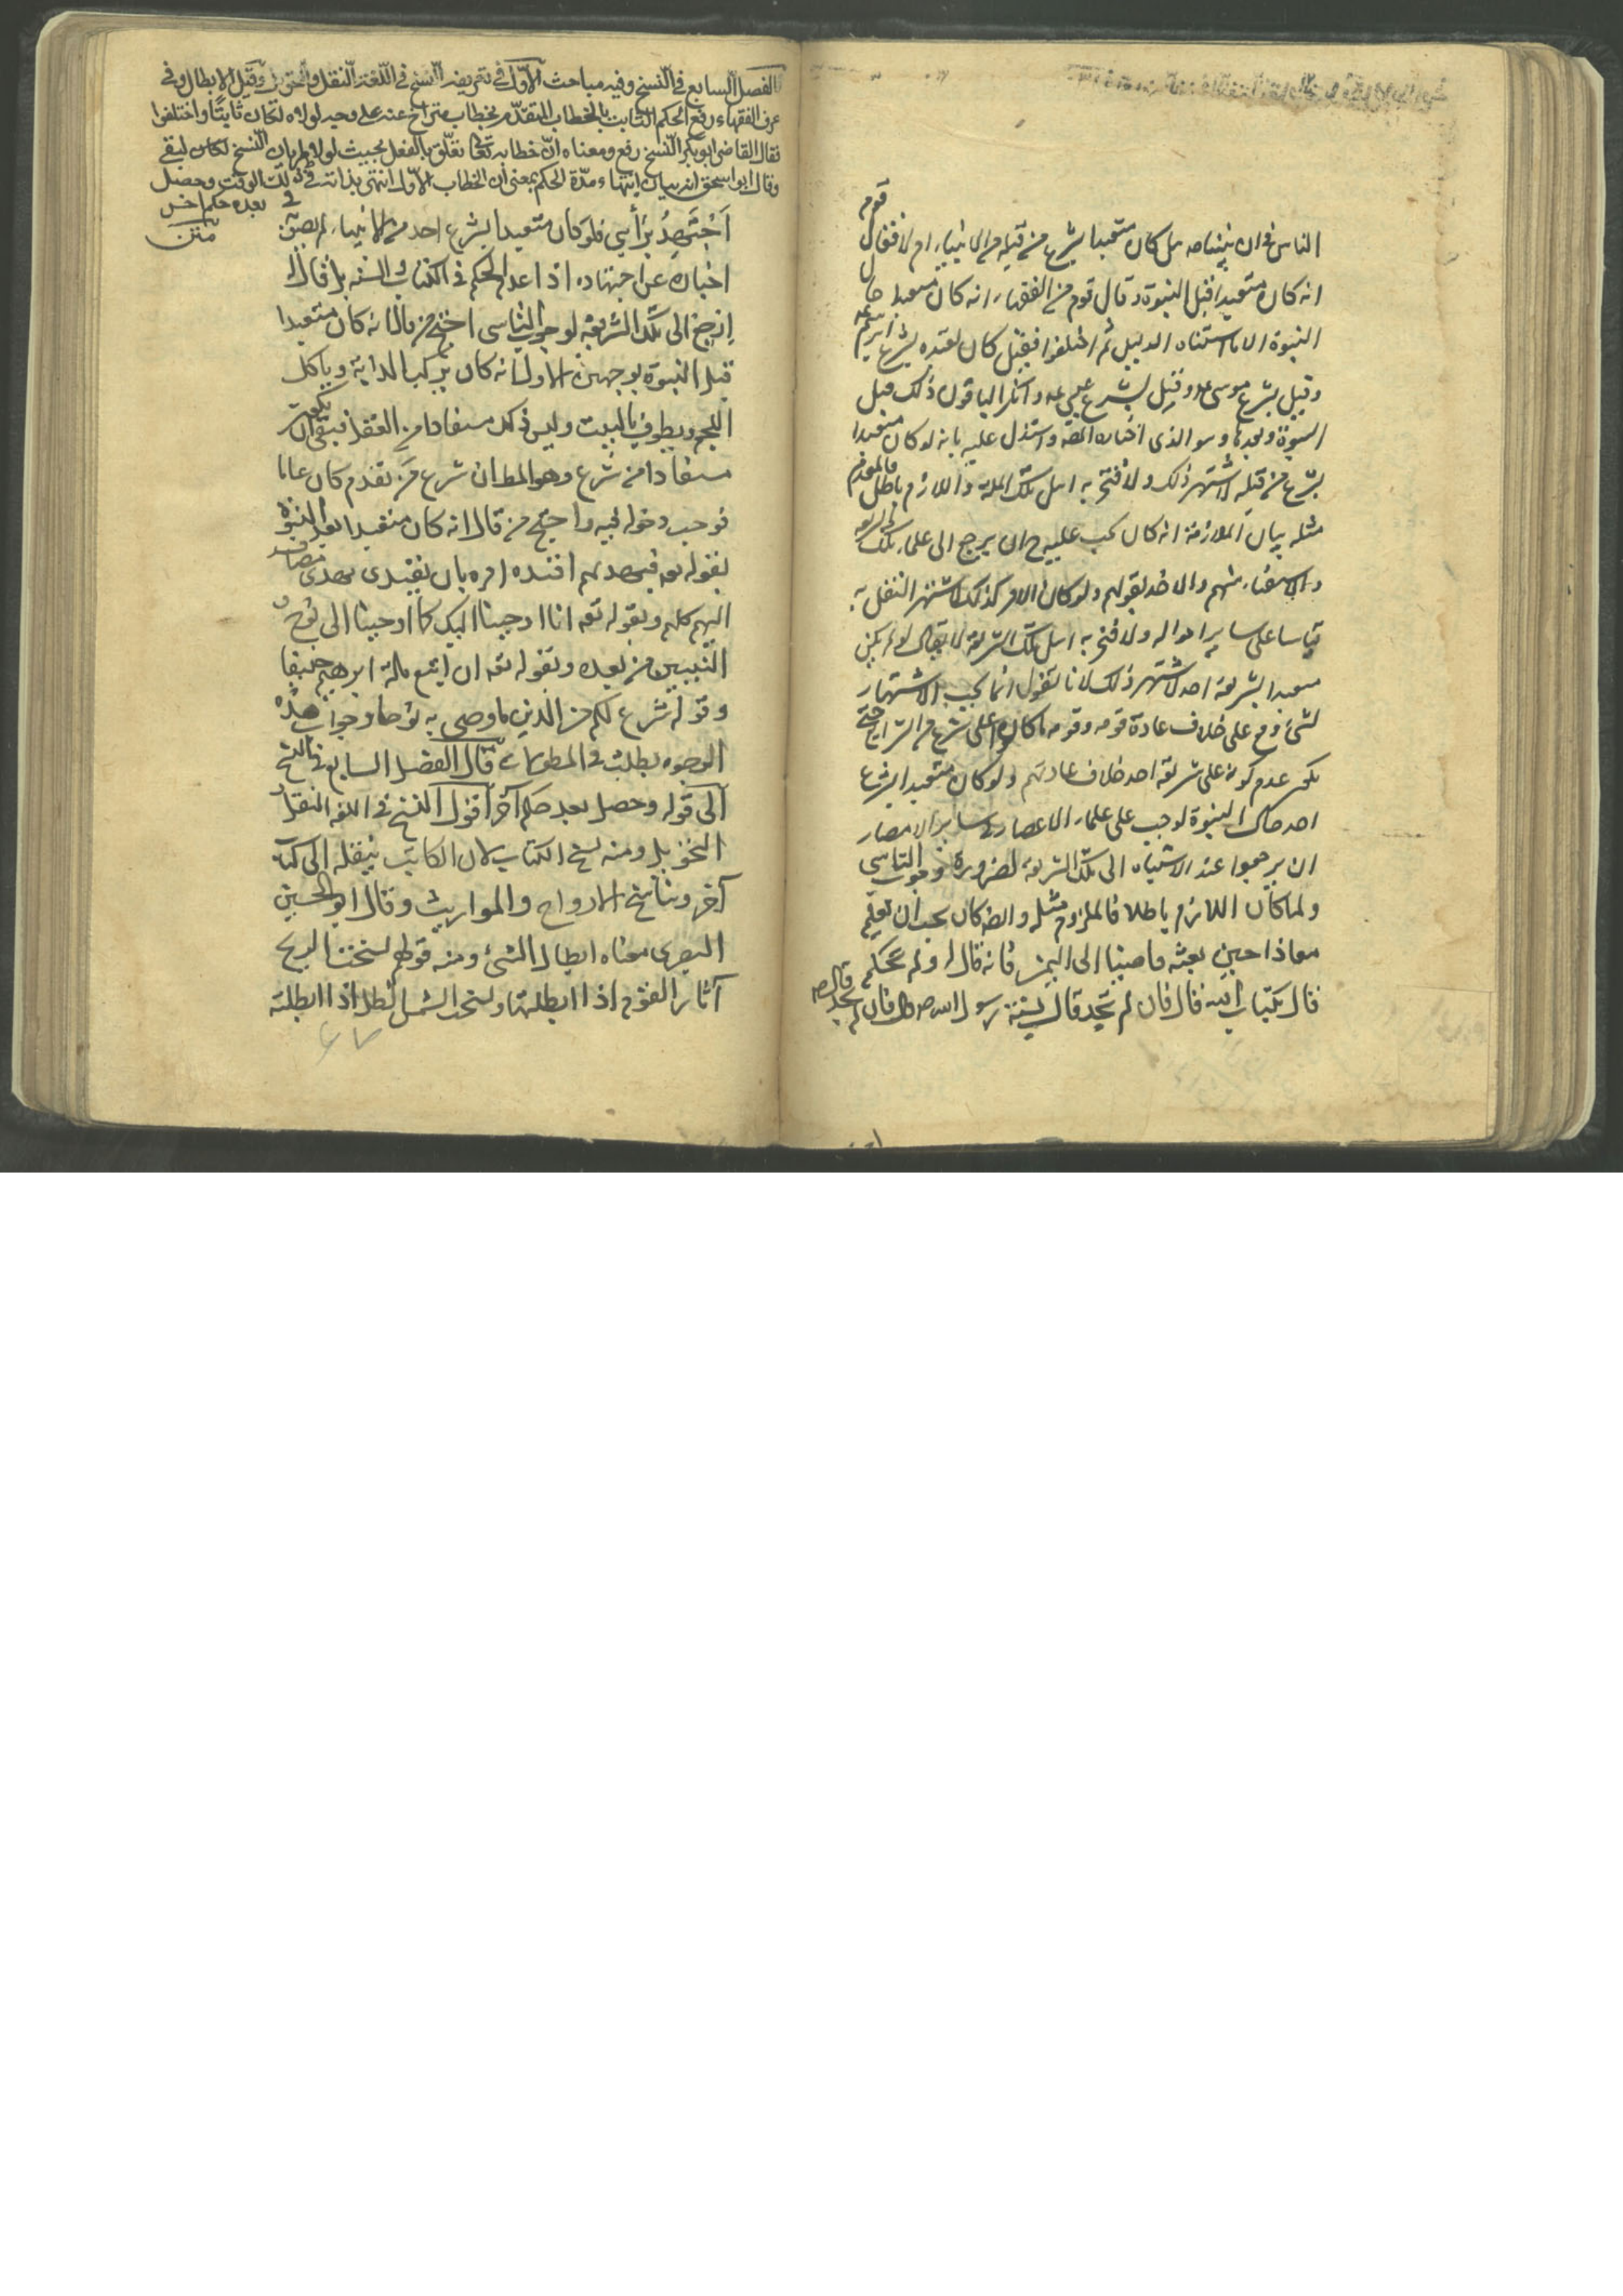 الناس في ان نبينا صه هل كان متعبدا بشرع من قبله من الانبياء ام لا فقال قوم
انه كان متعبدا قبل النبوة وقال قوم من الفقهاء انه كان متعبدا حال
النبوة الا ما استثناه الدليل ثم اختلفوا فقيل كان تعبده بشرع ابرهيم عه
وقيل بشرع موسى عه وقيل بشرع عيسى عه وانكر الباقون ذلك قبل
النبوة وبعدها وهو الذي اختاره المصه واستدل عليه بانه لو كان متعبدا
بشرع من قبله لاشتهر ذلك ولافتخر به اهل تلك الملة واللازم باطل فالملزوم
مثله بيان الملازمة انه كان يجب عليه ح ان يرجع الى علماء تلك الشريعه
والاستفتاء منهم والاخذ بقولهم ولو كان الامر كذلك لاشتهر النقل به
قياسا على ساير احواله ولافتخر به اهل تلك الشريعة لا يقال لو لم يكن
متعبدا بشريعة احد لاشتهر ذلك لانا نقول انما يجب الاشتهار
لشئ وقع على خلاف عادة قومه وقومه ما كانوا على شرع من الشرايع حتى
يكون عدم كونه على شريعة احد خلاف عادتهم ولو كان متعبدا بشرع
احد حال النبوة لوجب على علماء الاعصار في ساير الامصار
ان يرجعوا عند الاشتباه الى تلك الشريعة لضرورة وجوب التاسي
ولما كان اللازم باطلا فالملزوم مثله وايضا كان يجب ان تعليم
معاذا حين بعثه قاضيا الى اليمن فانه قال له بم تحكم
قال بكتاب الله قال فان لم تجد قال بسنة رسول الله صه قال فان لم تجد قال
الفصل السابع في النسخ وفيه مباحث الاول في تعريفه النسخ في اللغة النقل والتحويل وقيل الابطال وفي
عرف الفقهاء رفع الحكم الثابت بالخطاب المتقدم بخطاب متراخ عنه على وجه لولاه لكان ثابتا واختلفوا
فقال القاضي ابوبكر النسخ رفع ومعناه ان خطابه تعالى تعلق بالفعل بحيث لولا طريان النسخ لكان لبقي
وقال ابو اسحق انه بيان انتهاء مدة الحكم بمعنى ان الخطاب الاول انتهى بذاته في ذلك الوقت وحصل
بعده حكم اخر
متن
اَجْتَهِدُ برَأيي فلو كان متعبدا بشرع احد من الانبياء لم يصوبه في
اخباره عن اجتهاده اذا عدم الحكم في الكتاب والسنه بل قال له
ارجع الى تلك الشريعة لوجوب التاسي احتج من قال انه كان متعبدا
قبل النبوة بوجهين الاول انه كان يركب الدابة وياكل
اللحم ويطوف بالبيت وليس ذلك مستفادا من العقل فبقى ان يكون
مستفادا من شرع وهو المط الثاني شرع من تقدم كان عاما
فوجب دخوله فيه واحتج من قال انه كان متعبدا بعد النبوة
بقوله تعه فبهديهم اقتده امره بان يقتدي بهدى مضاف
اليهم كلهم وبقوله تعه انا اوحينا اليك كما اوحينا الى نوح و
النبيين من بعده وبقوله تعه ان اتبع ملة ابرهيم حنيفا
وقوله شرع لكم من الدين ما وصى به نوحا وجواب هذه
الوجوه يطلب في المطولات قال الفصل السابع في النسخ
الى قوله وحصل بعده حكم آخر اقول النسخ في اللغه النقل و
التحويل ومنه نسخ الكتاب لان الكاتب ينقله الى كتاب
آخر وتناسخ الارواح والمواريث وقال ابو الحسين
البصرى معناه ابطال الشئ ومنه قولهم نسخت الريح
آثار القوم اذا ابطلتها ونسخت الشمس الظل اذا ابطلته